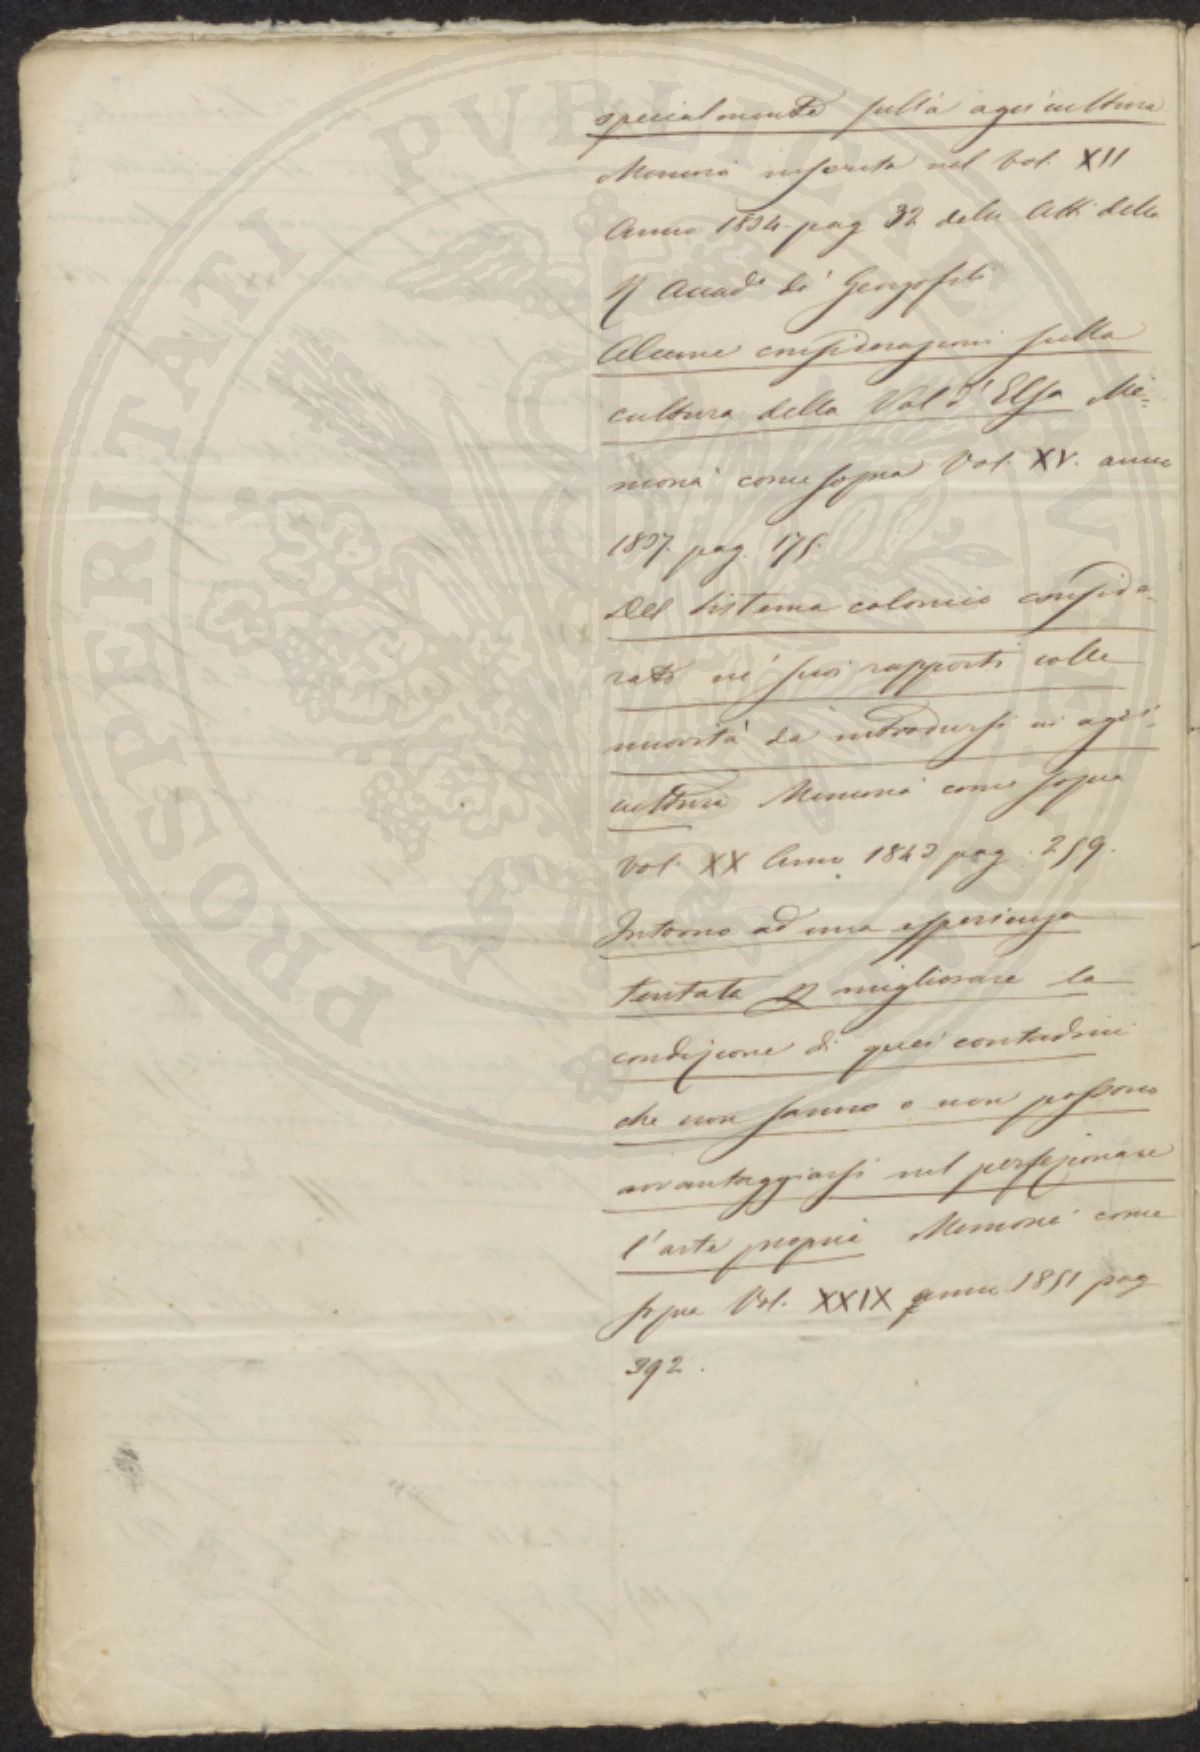 specialmente sulla agricultura
Memoria inserita nel Vol. XII
Anno 1834. pag 32 delli Atti della
R Accad.a de' Georgofili
Alcune considerazioni sulla
cultura della Val d'Elsa Me-
moria come sopra Vol. XV. anno
1837. pag. 175.
Del Sistema colonico conside-
rato ne' suoi rapporti colle
novità da introdursi in agri-
cultura Memoria come sopra
Vol. XX Anno 1843 pag. 259.
Intorno ad una esperienza
tentata p migliorare la
condizione di quei contadini
che non sanno o non possono
avvantaggiarsi nel perfezionare
l'arte propria Memoria come
sopra Vol. XXIX anno 1851 pag
392.
PROSPERITATI PVBLICAE